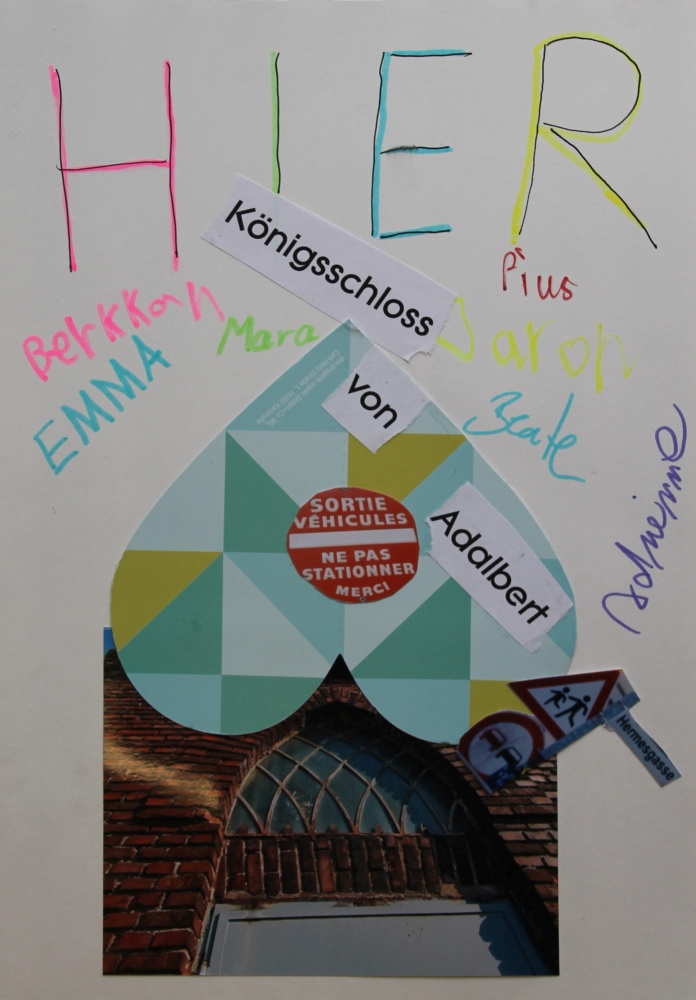 HIER
Königsschloss
von
Adalbert
Pius
Berkkan
Mara
Jaron
EMMA
Beate
Adrienne
SORTIE
VÉHICULES
NE PAS
STATIONNER
MERCI
Hermesgasse